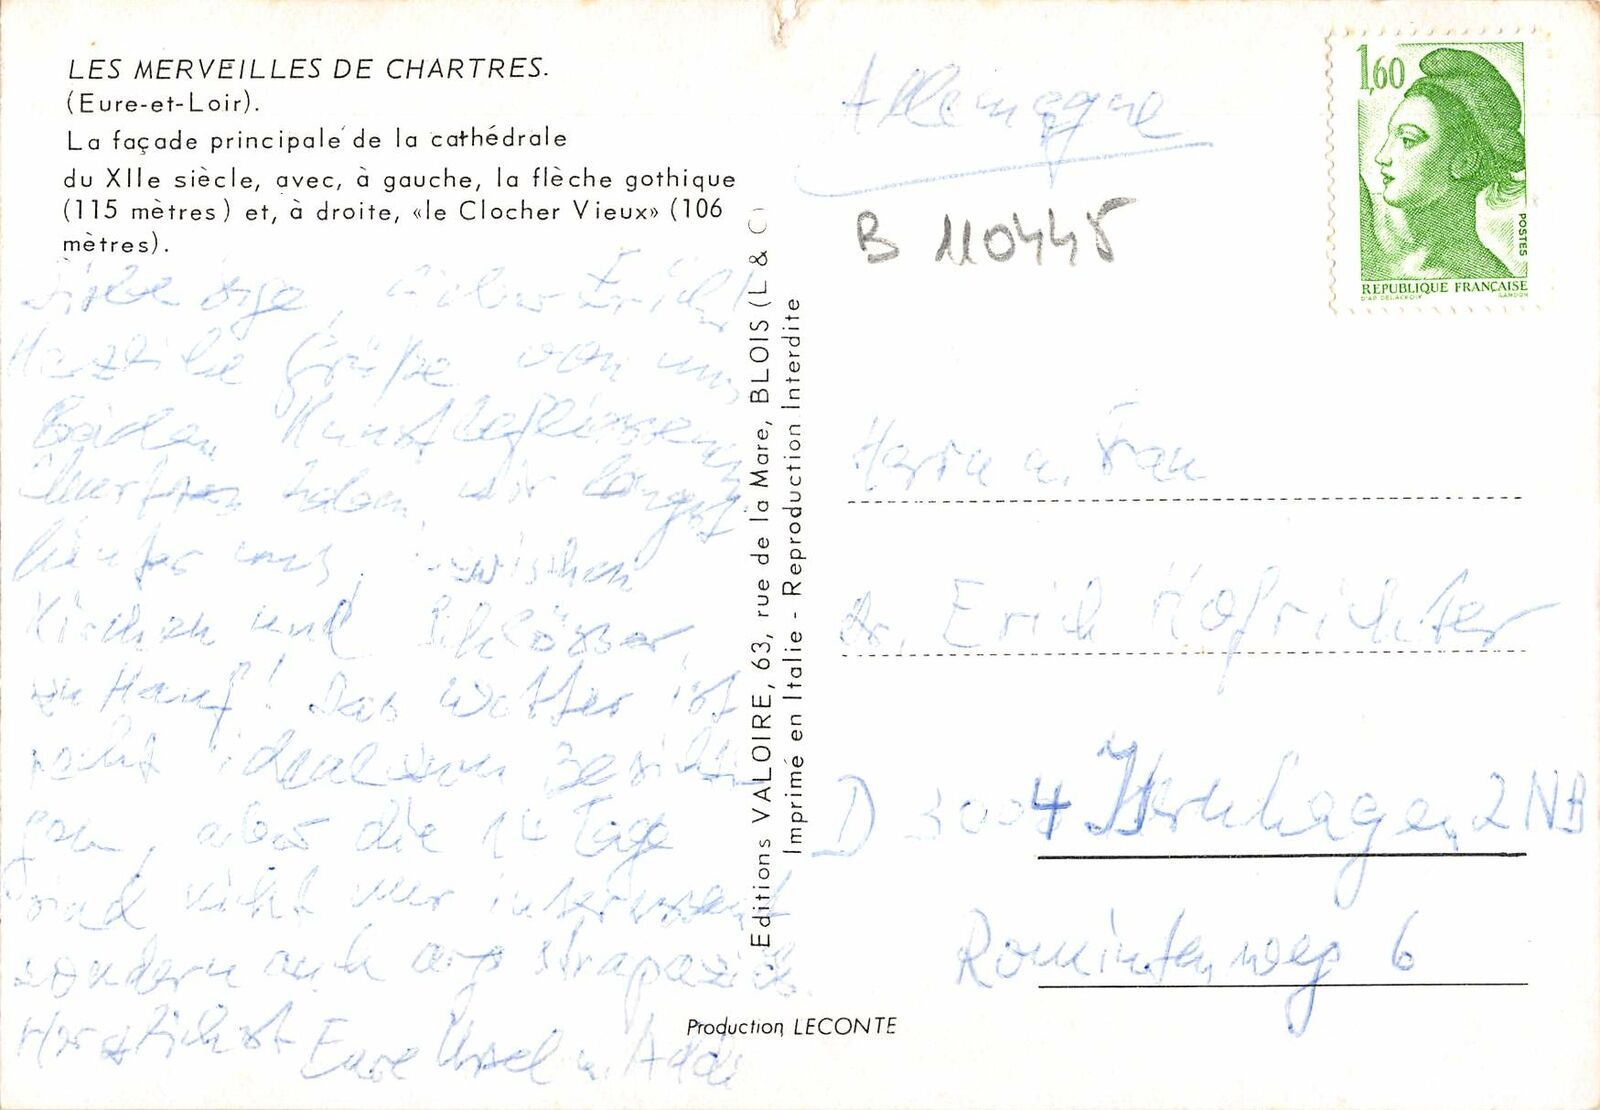 LES MERVEILLES DE CHARTRES.
(Eure-et-Loir).
La façade principale de la cathédrale
du XIIe siècle, avec, à gauche, la flèche gothique
(115 mètres) et, à droite, «le Clocher Vieux» (106
mètres).
Liebe Inge, lieber Erich!
Herzliche Grüße von uns
beiden Kunstbeflissenen
Chartres haben wir längst
hinter uns, inzwischen
Kirchen und Schlösser
zu Hauf! Das Wetter ist
recht ideal zum Besichti
gen, aber die 14 Tage
sind nicht nur interessant
sondern auch arg strapaziös.
Herzlichst Eure Ursel u. Addi
Editions VALOIRE, 63, rue de la Mare, BLOIS (L & C)
Imprimé en Italie - Reproduction Interdite
Production LECONTE
Allemagne
B 110445
1,60
POSTES
REPUBLIQUE FRANÇAISE
D'AP. DELACROIX GANDON
Herrn u. Frau
Dr. Erich Hofrichter
D 3004 Isernhagen 2 NB
Rominten weg 6